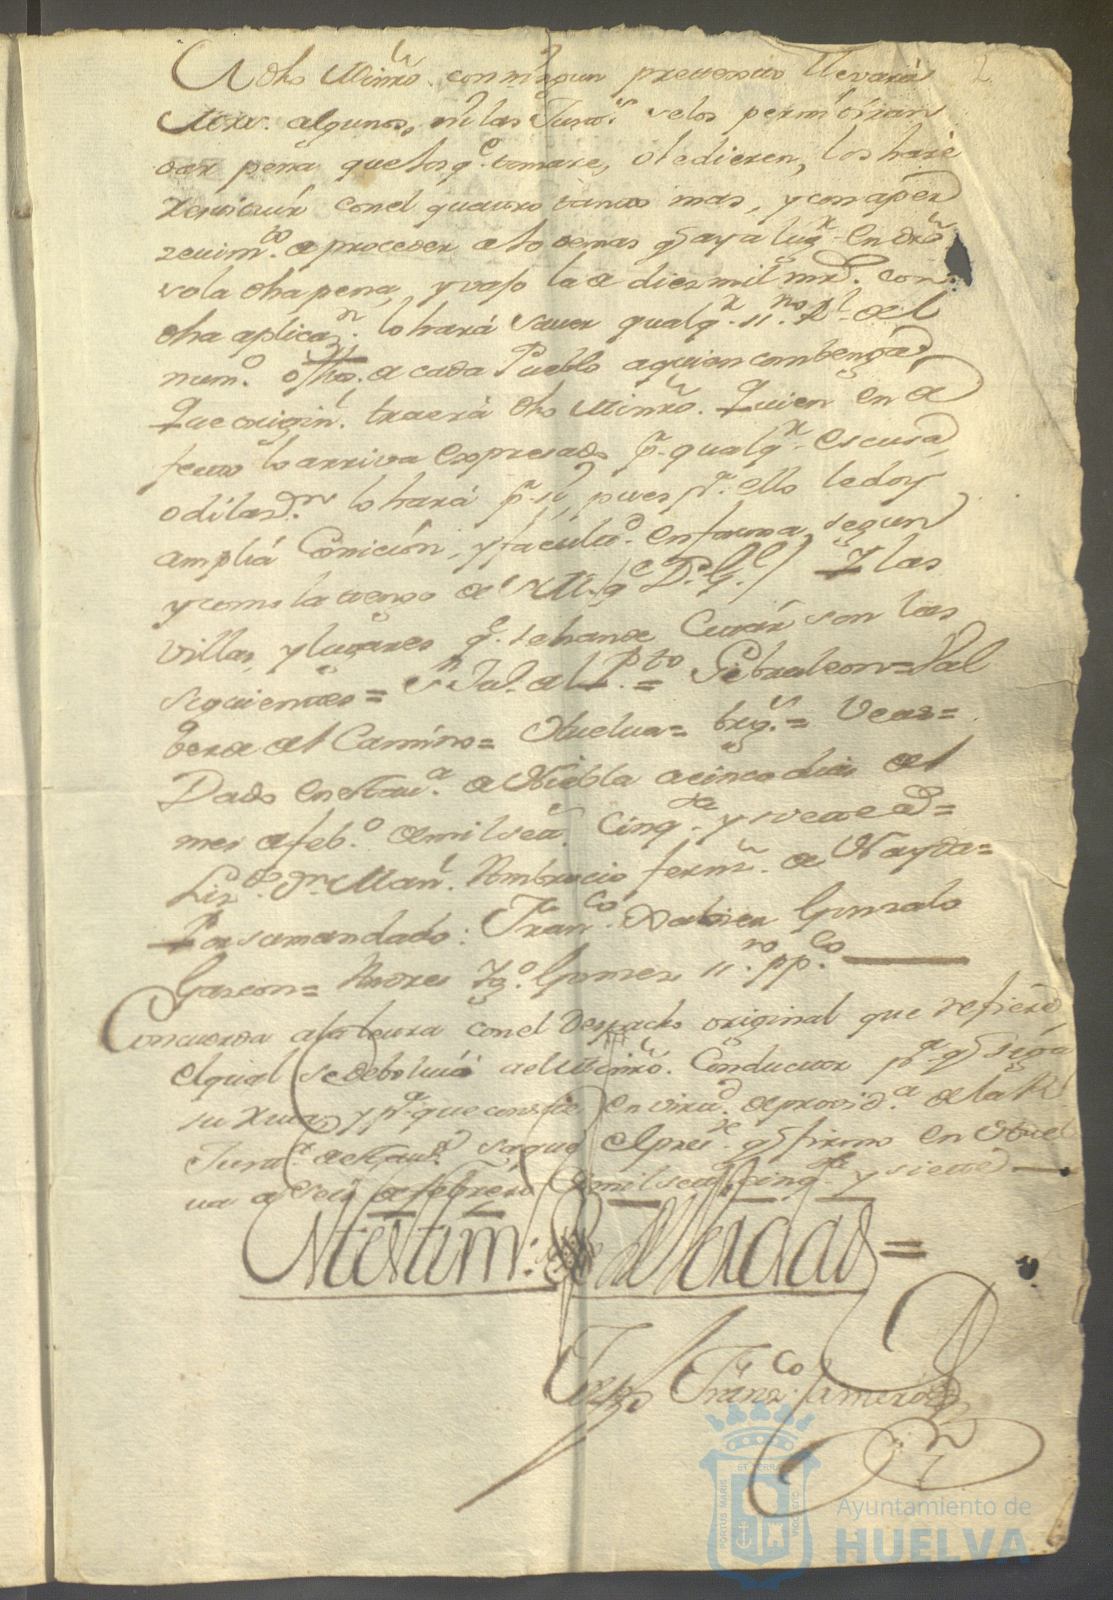 A dho Minro. con ningun pretexto llevará
Mrs. algunos, ni las Justs. se los permitiran
dar pena que los q.e tomare, o le dieren, los hará
restituir con el quatro tanto mas, y con aper
zevim.to de proceder a lo demas q aya lug.r en dro
vola dha pena, y vajo la de dies mil mrs. con
dha aplicaz.n lo hará saver qualq.r ss.no Rl. del
num.o o ppco. de cada Pueblo a quien combenga
que origin.l traerá dho Minro. Quien en de
fecto lo arriva expresado pr. qualq.r escusa,
o dilaz.on lo hará pr. si, pues p.a ello le doy
amplia Comicion, y facultd. en forma segun
y como la tengo de S.M. (q.e D. G.e) Y las
villas, y lugares q.e se han de Corrér son las
siguientes = Sn Ju.n del P.to = Gibraleon = Bal
berde del Camino = Huelva = Trig.s = Veas =
Dado en esta v.a de Niebla a cinco dias del
mes de feb.o de mil setr. cinq.ta y siete a.s =
Liz.do Dn. Man.l Ambrocio fern.z de Nayda =
Por su mandado: Fran.co Xabier Gonzalo
Garzon = Andres Jg.o Gomez ss.no pp.co
Concuerda a la letra con el despacho original que refiero
el qual se debolvió a el Minro. Conductor p.a q siga
su ruta, y p.a que conste en virtd. de provid.a de la Rl.
Just.a de esta v.a saqué el pres.te q firmo en Huel
va a seis de febrero de mil setr. cinq.ta y siete
En testim.o de Verdad =
Diego Fran.co Camero
Ayuntamiento de
HUELVA
PORTUS MARIS
ET TERRAE
CUSTODIA